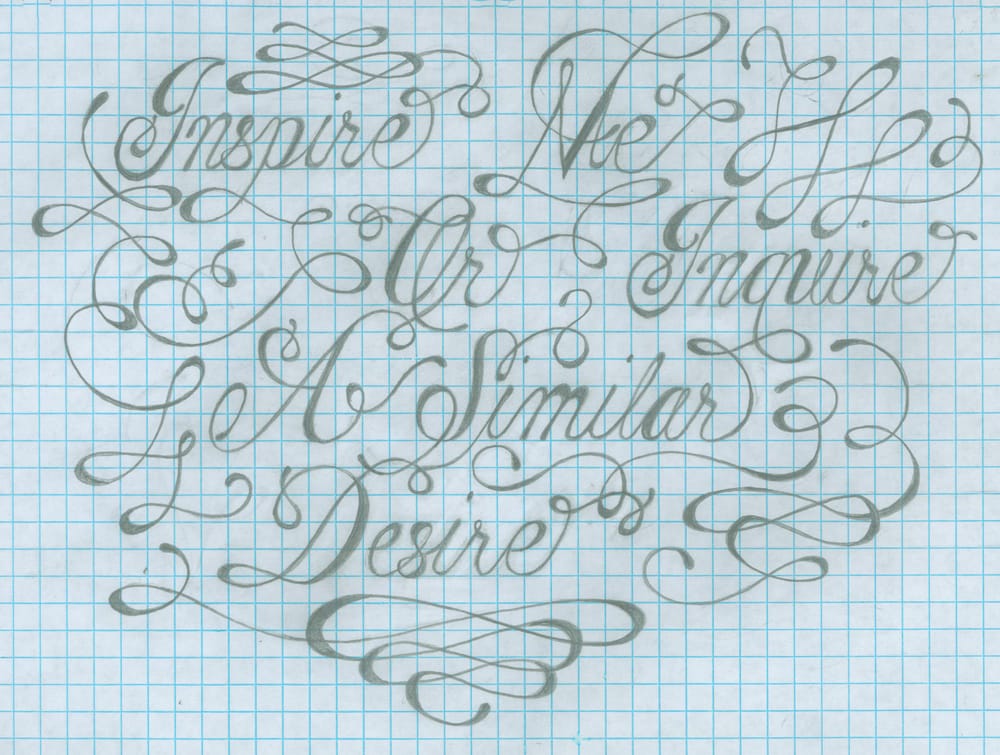 Inspire Me
Or Inquire
A Similar
Desire